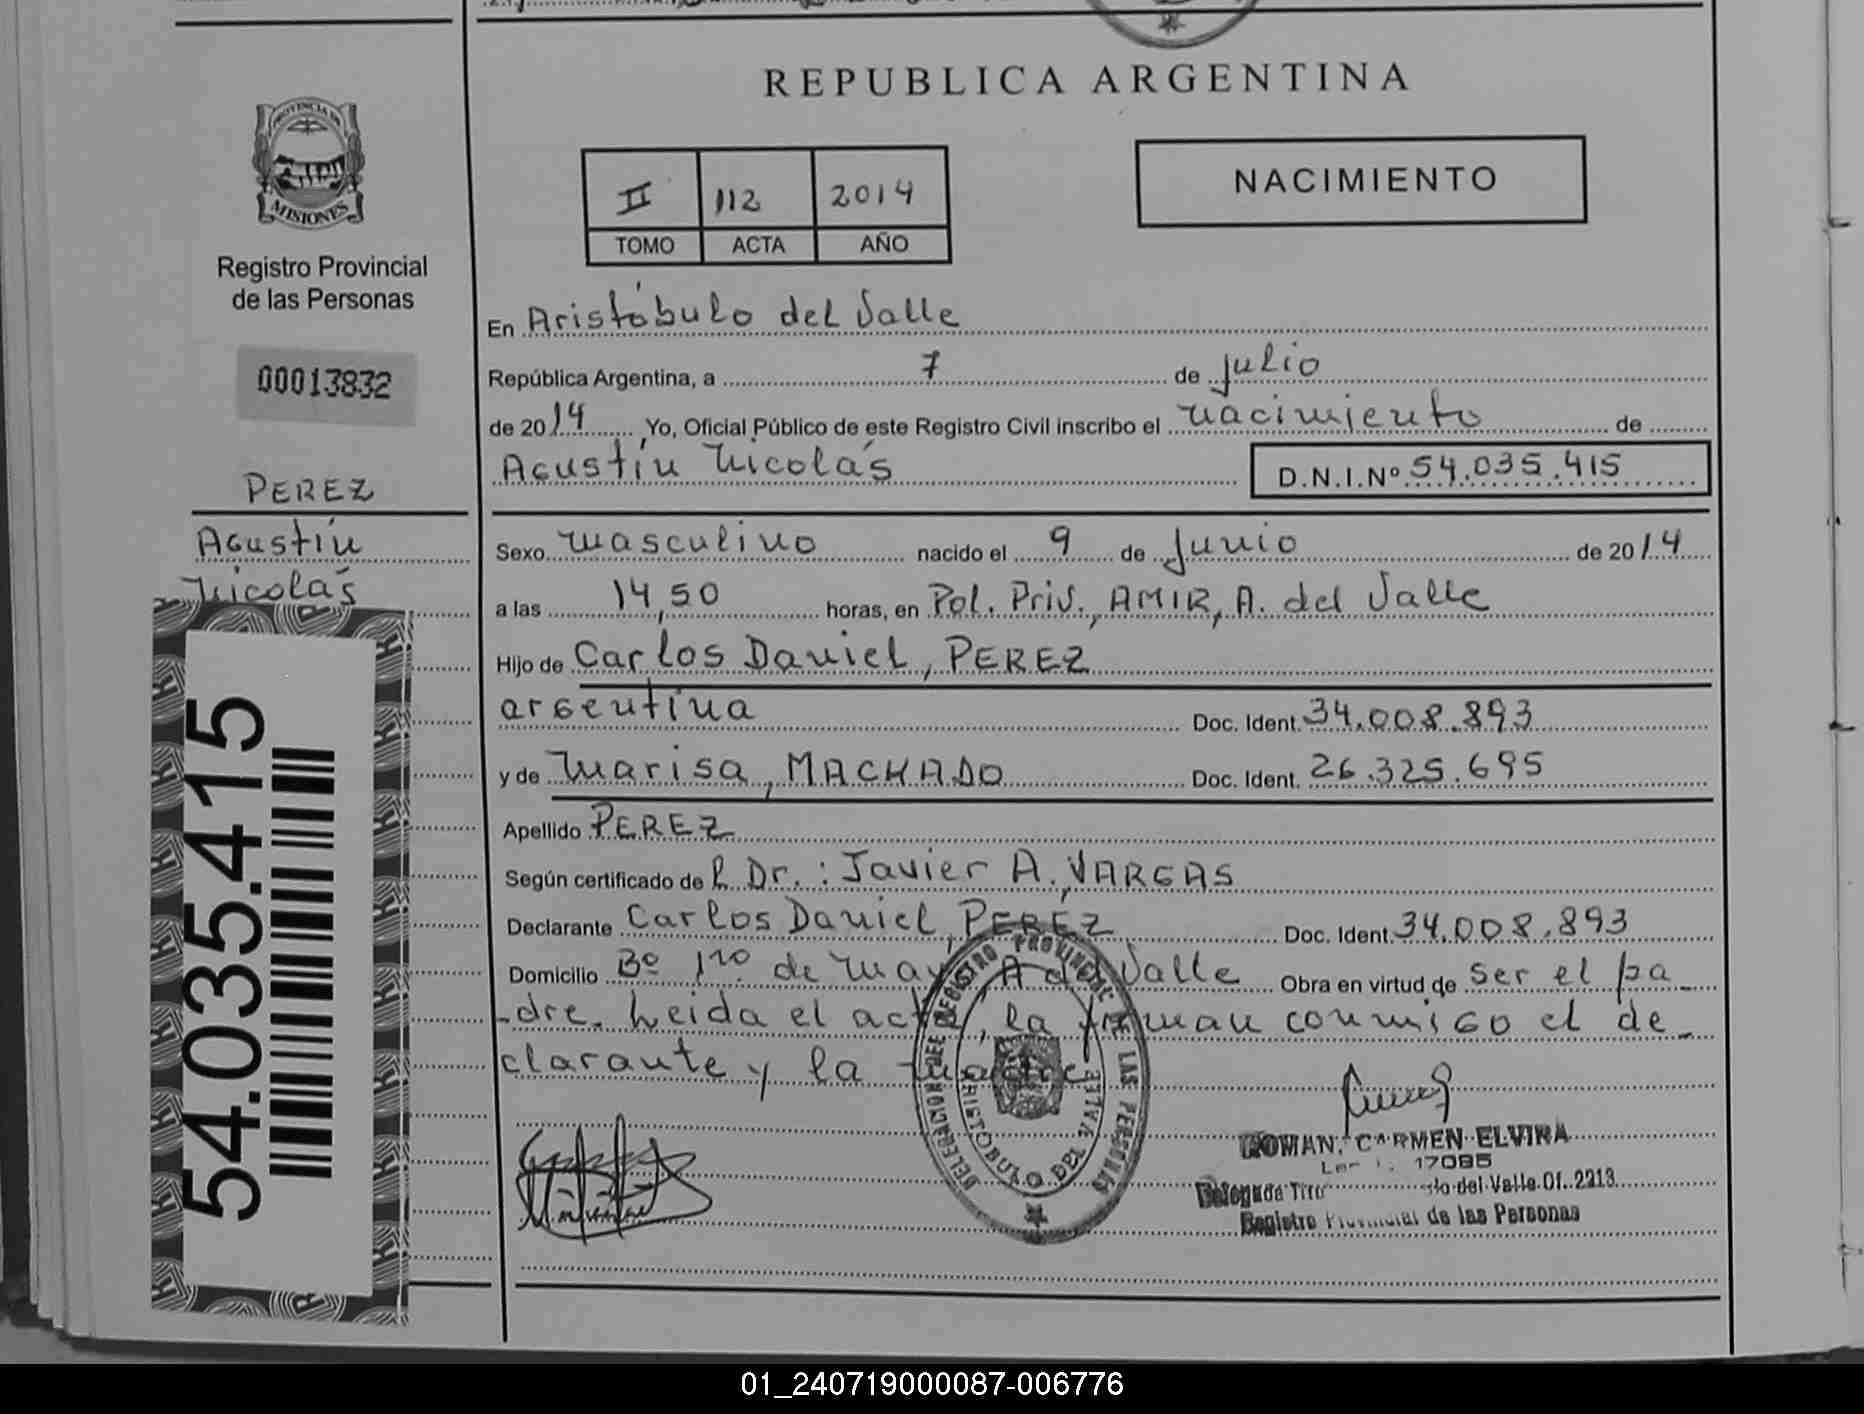 REPUBLICA ARGENTINA
PROVINCIA DE
MISIONES
Registro Provincial
de las Personas
00013832
II 112 2014
TOMO ACTA AÑO
NACIMIENTO
En Aristóbulo del Valle
República Argentina, a 7 de julio
de 2014, Yo, Oficial Público de este Registro Civil inscribo el nacimiento de
Agustín Nicolás D.N.I.Nº 54.035.415
PEREZ
Agustín
Nicolás
54.035.415
Sexo masculino nacido el 9 de Junio de 2014
a las 14,50 horas, en Pol. Priv., AMIR, A. del Valle
Hijo de Carlos Daniel, PEREZ
argentina Doc. Ident. 34.008.893
y de Marisa, MACHADO Doc. Ident. 26.325.695
Apellido PEREZ
Según certificado de l Dr.: Javier A. VARGAS
Declarante Carlos Daniel, PEREZ Doc. Ident. 34.008.893
Domicilio Bº 1ro de May, A del Valle Obra en virtud de ser el pa-
-dre. Leida el acta, la firman conmigo el de-
clarante y la madre
DELEGACION DEL REGISTRO PROVINCIAL DE LAS PERSONAS
ARISTOBULO DEL VALLE
ROMAN, CARMEN ELVIRA
17095
Delegada Titu del Valle Of. 2213
Registro Provincial de las Personas
01_240719000087-006776